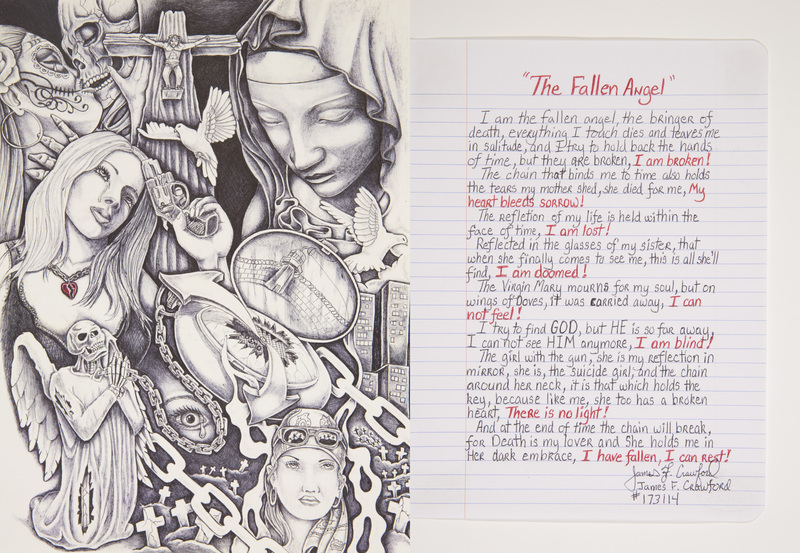 "The Fallen Angel"
I am the fallen angel, the bringer of
death, everything I toach dies and leaves me
in salitude, and I try to hold back the hands
of time, but they are broken, I am broken!
The chain that binds me to time also holds
the tears my mother shed, she died for me, My
heart bleeds sorrow!
The refletion of my life is held within the
face of time, I am lost!
Reflected in the glasses of my sister, that
when she finally comes to see me, this is all she'll
find, I am doomed!
The Virgin Mary mourns for my soul, but on
wings of Doves, it was carried away, I can
not feel!
I try to find GOD, but HE is so far away,
I can not see HIM anymore, I am blind!
The girl with the gun, she is my reflection in
mirror, she is, the suicide girl, and the chain
around her neck, it is that which holds the
key, because like me, she too has a broken
heart, There is no light!
And at the end of time the chain will break,
for Death is my lover and She holds me in
Her dark embrace, I have fallen, I can rest!
James F. Crawford
James F. Crawford
#173114